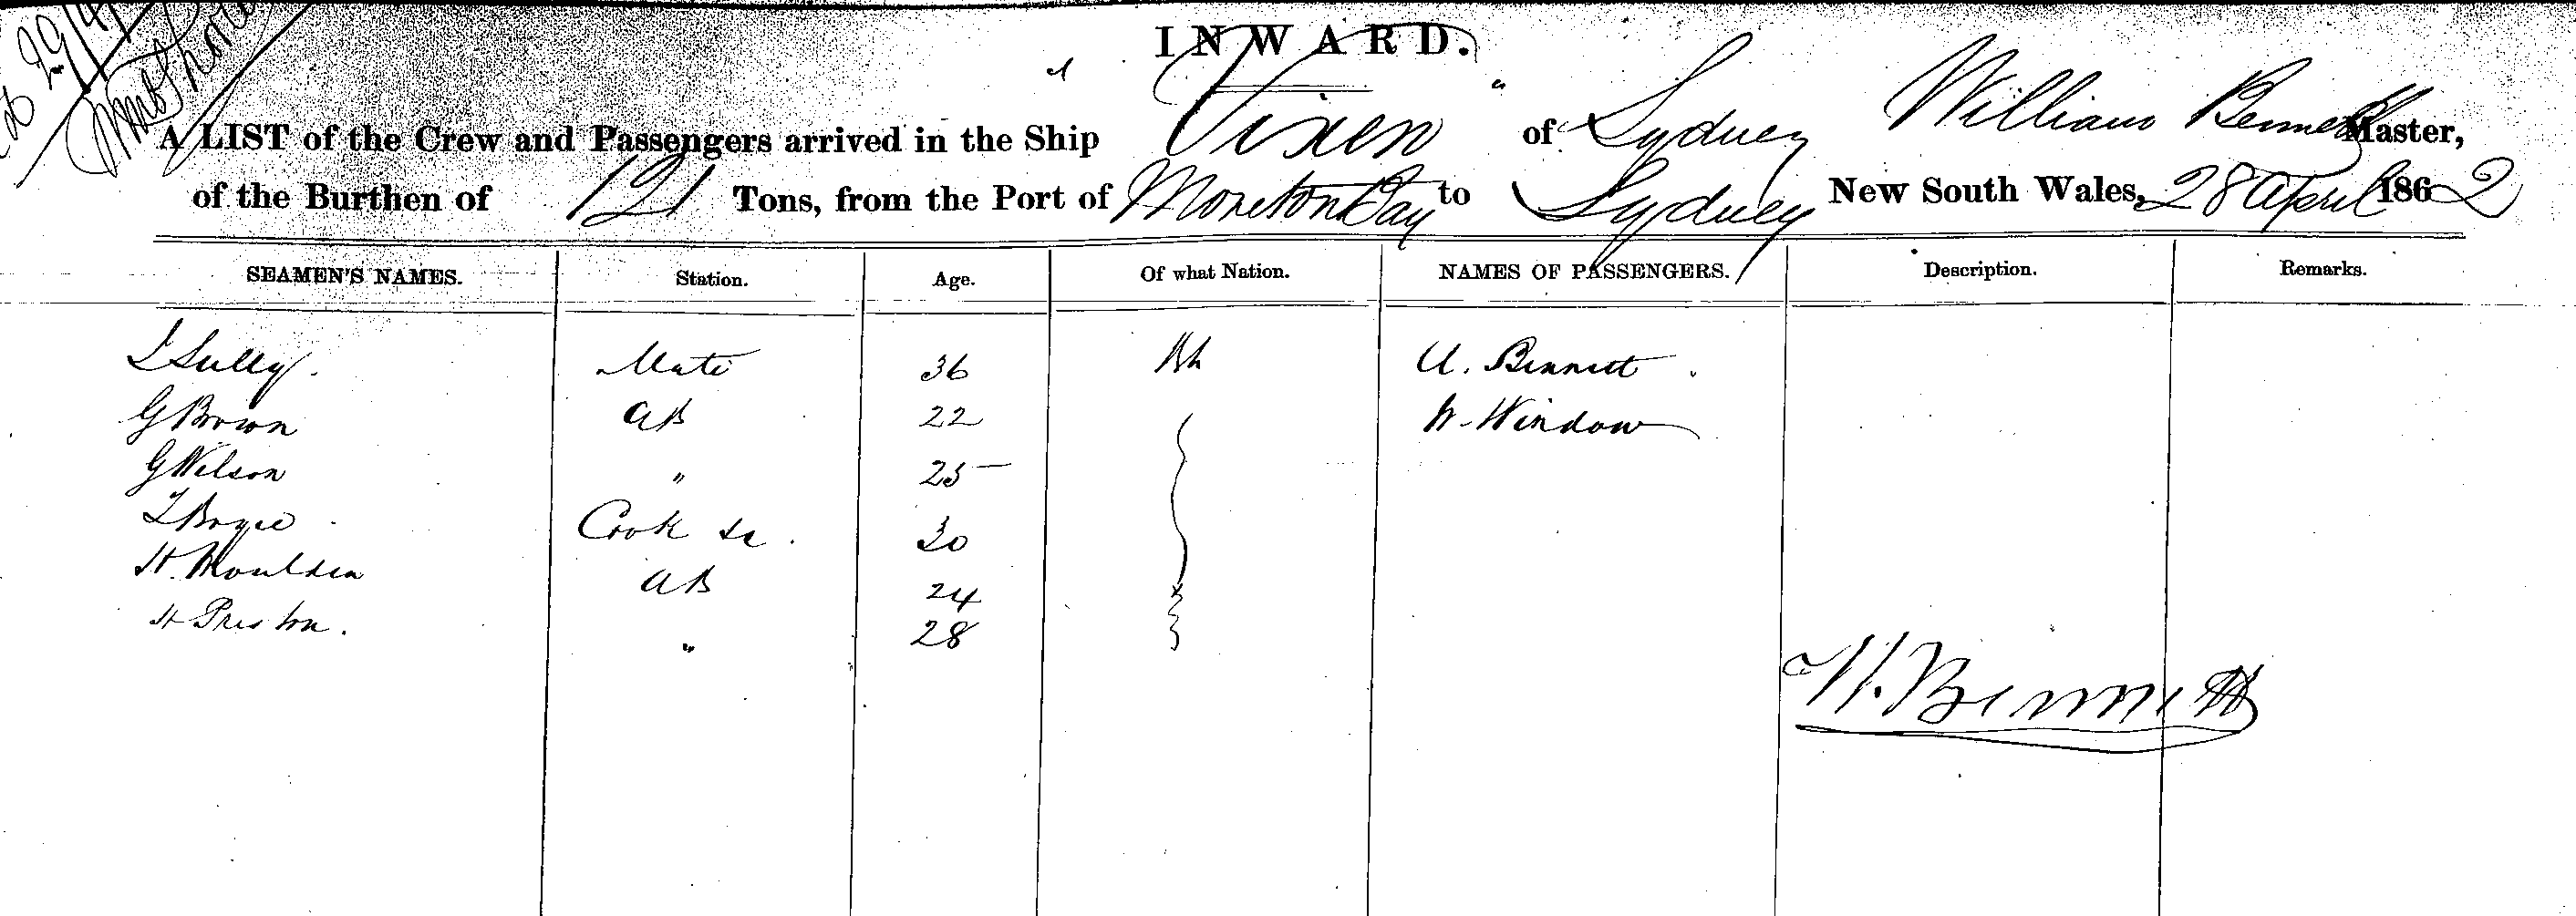 INWARD.
A LIST of the Crew and Passengers arrived in the Ship "Vixen" of Sydney William Bennett Master,
of the Burthen of 121 Tons, from the Port of Moreton Bay to Sydney New South Wales, 28 April 1862
SEAMEN'S NAMES. Station. Age. Of what Nation. NAMES OF PASSENGERS. Description. Remarks.
Sully. Mate 36 U. Bennett.
G Brown AB 22 W. Window
G Wilson " 25
Boyce Cook 30
H. Moulden AB 24
H Preston. " 28
W. Bennett